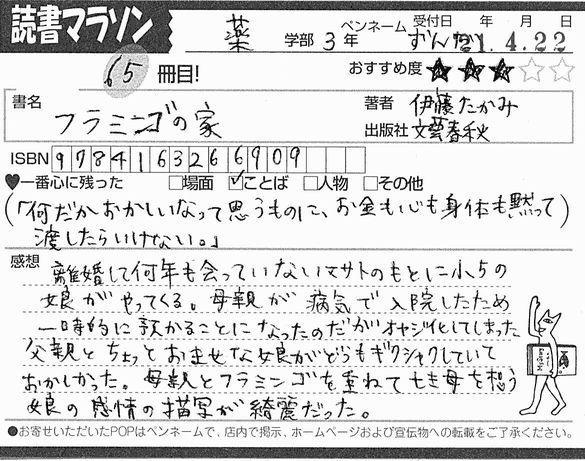 読書マラソン
薬 学部 3年 ペンネーム ずんだ 受付日 年 月 日
21.4.22
65 冊目! おすすめ度 ★★★☆☆
書名 フラミンゴの家
著者 伊藤たかみ
出版社 文藝春秋
ISBN 9784163266909
♥一番心に残った □場面 ☑ことば □人物 □その他
(「何だかおかしいなって思うものに、お金も心も身体も黙って)
渡したらいけない。」
感想
離婚して何年も会っていないマサトのもとに小5の
娘がやってくる。母親が病気で入院したため
一時的に預かることになったのだがオヤジ化してしまった
父親とちょっとおませな娘がどうもギクシャクしていて
おかしかった。母親とフラミンゴを重ねても母を想う
娘の感情の描写が綺麗だった。
●お寄せいただいたPOPはペンネームで、店内で掲示、ホームページおよび宣伝物への転載をご了承ください。